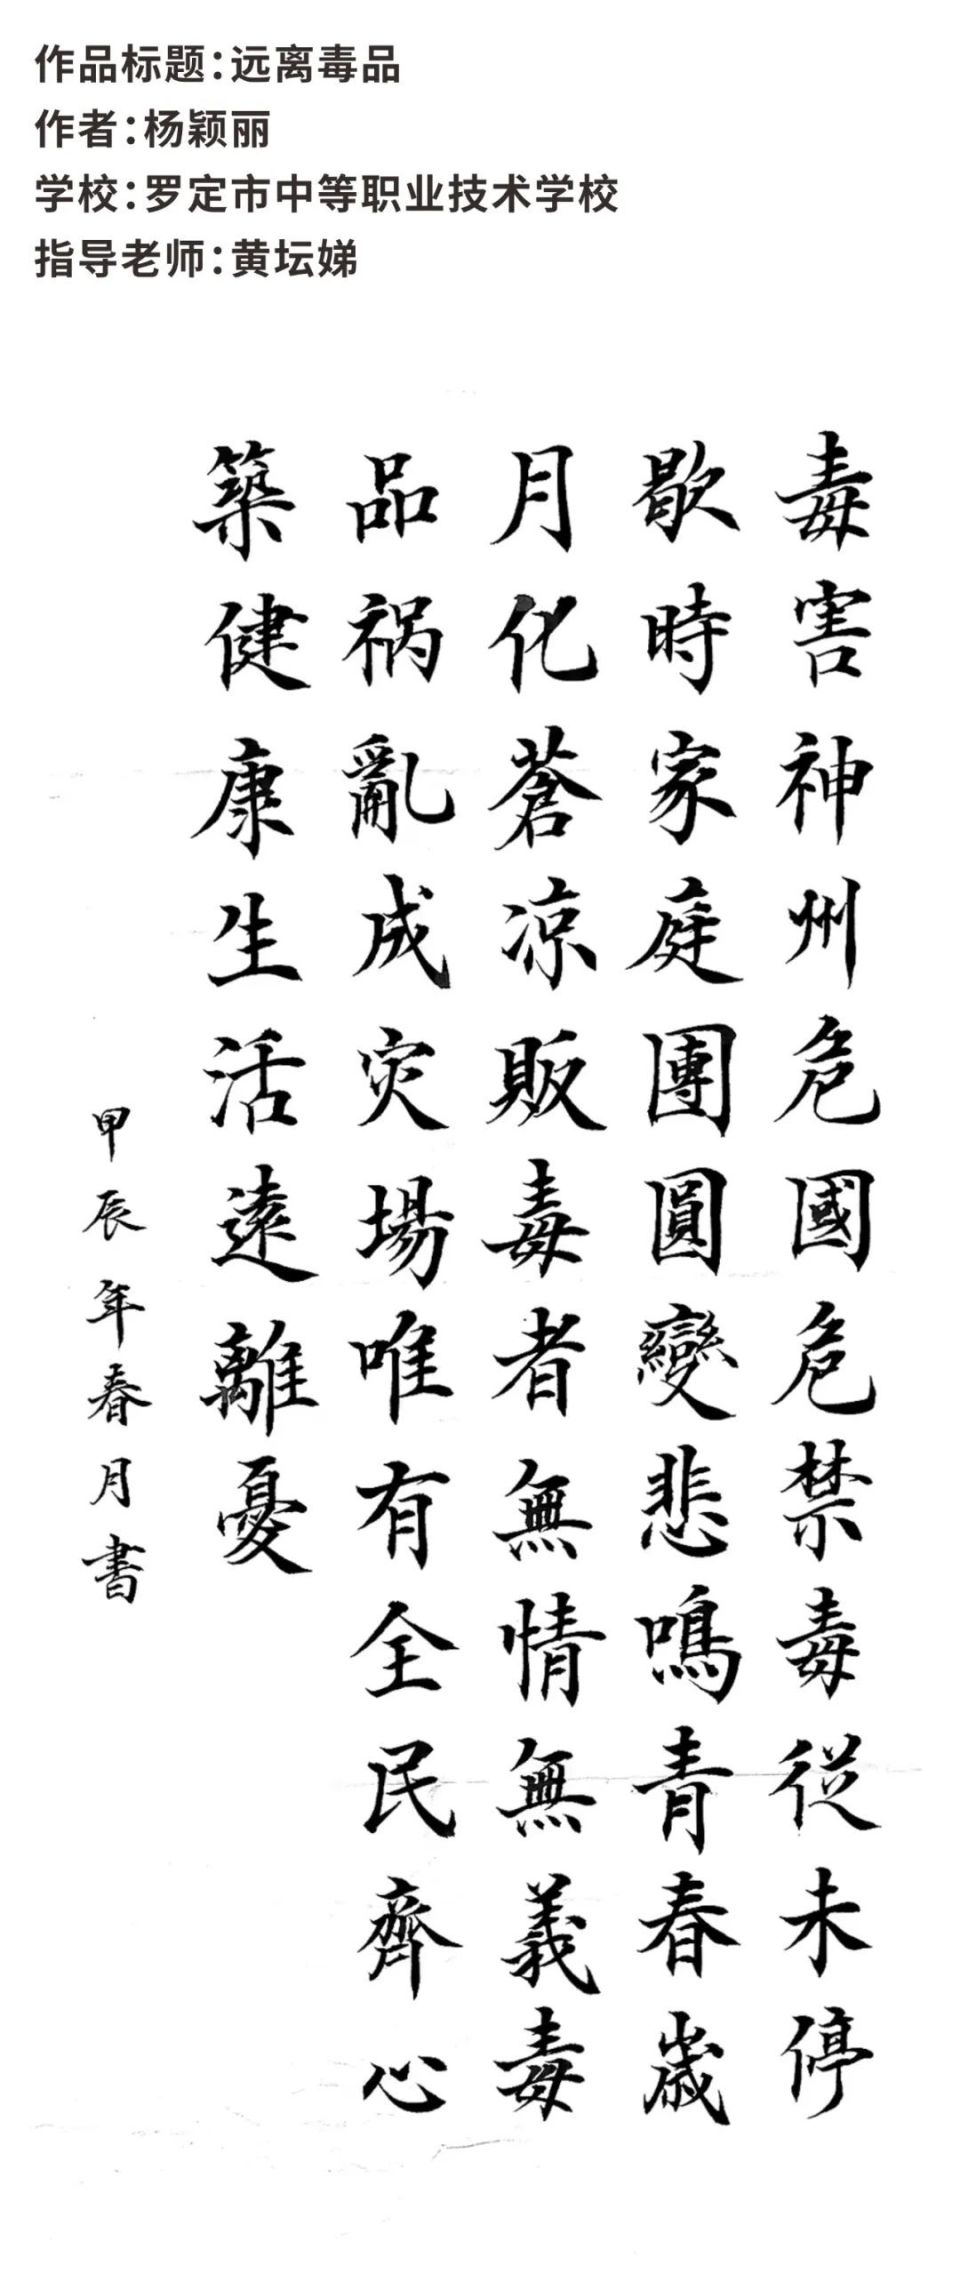 作品标题：远离毒品
作者：杨颖丽
学校：罗定市中等职业技术学校
指导老师：黄坛娣
毒害神州危國危禁毒從未停
歇時家庭團圓變悲鳴青春歲
月化蒼凉販毒者無情無義毒
品祸亂成灾場唯有全民齊心
築健康生活遠離憂
甲辰年春月書